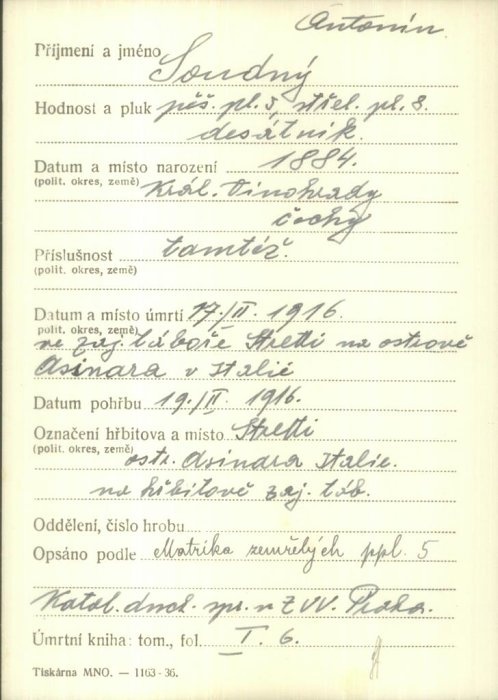 Antonín
Příjmení a jméno Soudný
Hodnost a pluk pěš. pl. 5, střel. pl. 8.
desátník.
Datum a místo narození 1884.
(polit. okres, země) Král. Vinohrady
Čechy
Příslušnost tamtéž.
(polit. okres, země)
Datum a místo úmrtí 17./II. 1916.
(polit. okres, země) ve zaj. táboře Stretti na ostrově
Asinara v Italié
Datum pohřbu 19./II. 1916.
Označení hřbitova a místo Stretti
(polit. okres, země) ostr. Asinara Italie.
na hřbitově zaj. táb.
Oddělení, číslo hrobu
Opsáno podle Matrika zemřelých ppl. 5
Katol. duch. spr. u ZVV. Praha.
Úmrtní kniha: tom., fol. I. 6.
Tiskárna MNO. — 1163-36.